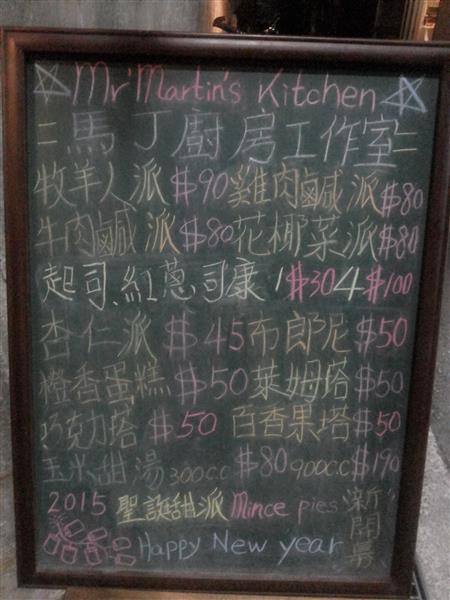 ☆Mr'Martin's Kitchen☆
=馬丁廚房工作室=
牧羊人派 $90 雞肉鹹派 $80
牛肉鹹派 $80 花椰菜派 $80
起司、紅蔥司康 1$30 4$100
杏仁派 $45 布郎尼 $50
橙香蛋糕 $50 萊姆塔 $50
巧克力塔 $50 百香果塔 $50
玉米甜湯 300cc $80 900c.c $190
2015 聖誕甜派 Mince pies
新開幕
Happy New year